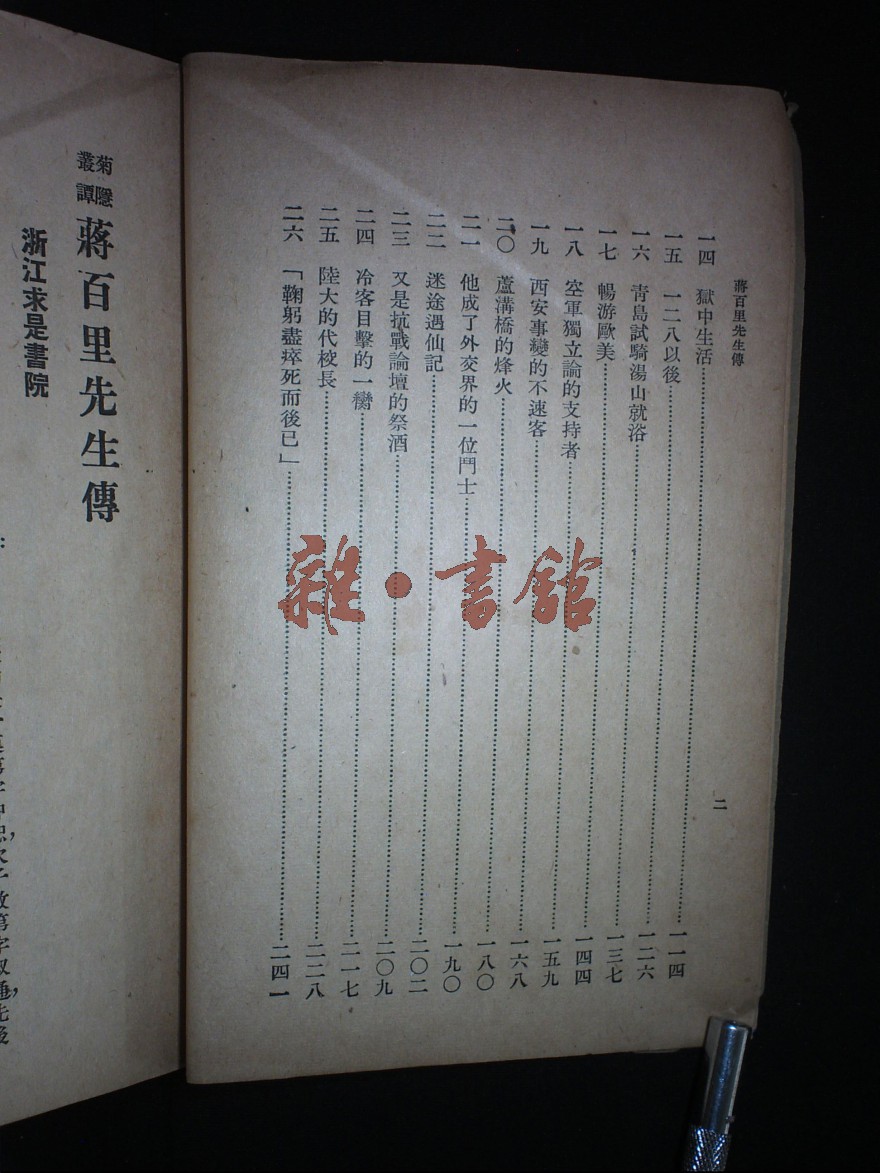 蔣百里先生傳
二
一四 獄中生活……一一四
一五 一二八以後……一二六
一六 青島試騎湯山就浴……一三七
一七 暢游歐美……一四四
一八 空軍獨立論的支持者……一五九
一九 西安事變的不速客……一六八
二〇 蘆溝橋的烽火……一八〇
二一 他成了外交界的一位鬥士……一九〇
二二 迷途遇仙記……二〇二
二三 又是抗戰論壇的祭酒……二〇九
二四 冷客目擊的一臠……二一七
二五 陸大的代校長……二二八
二六 「鞠躬盡瘁死而後已」……二四一
雜·書館
菊隱叢譚 蔣百里先生傳
浙江求是書院